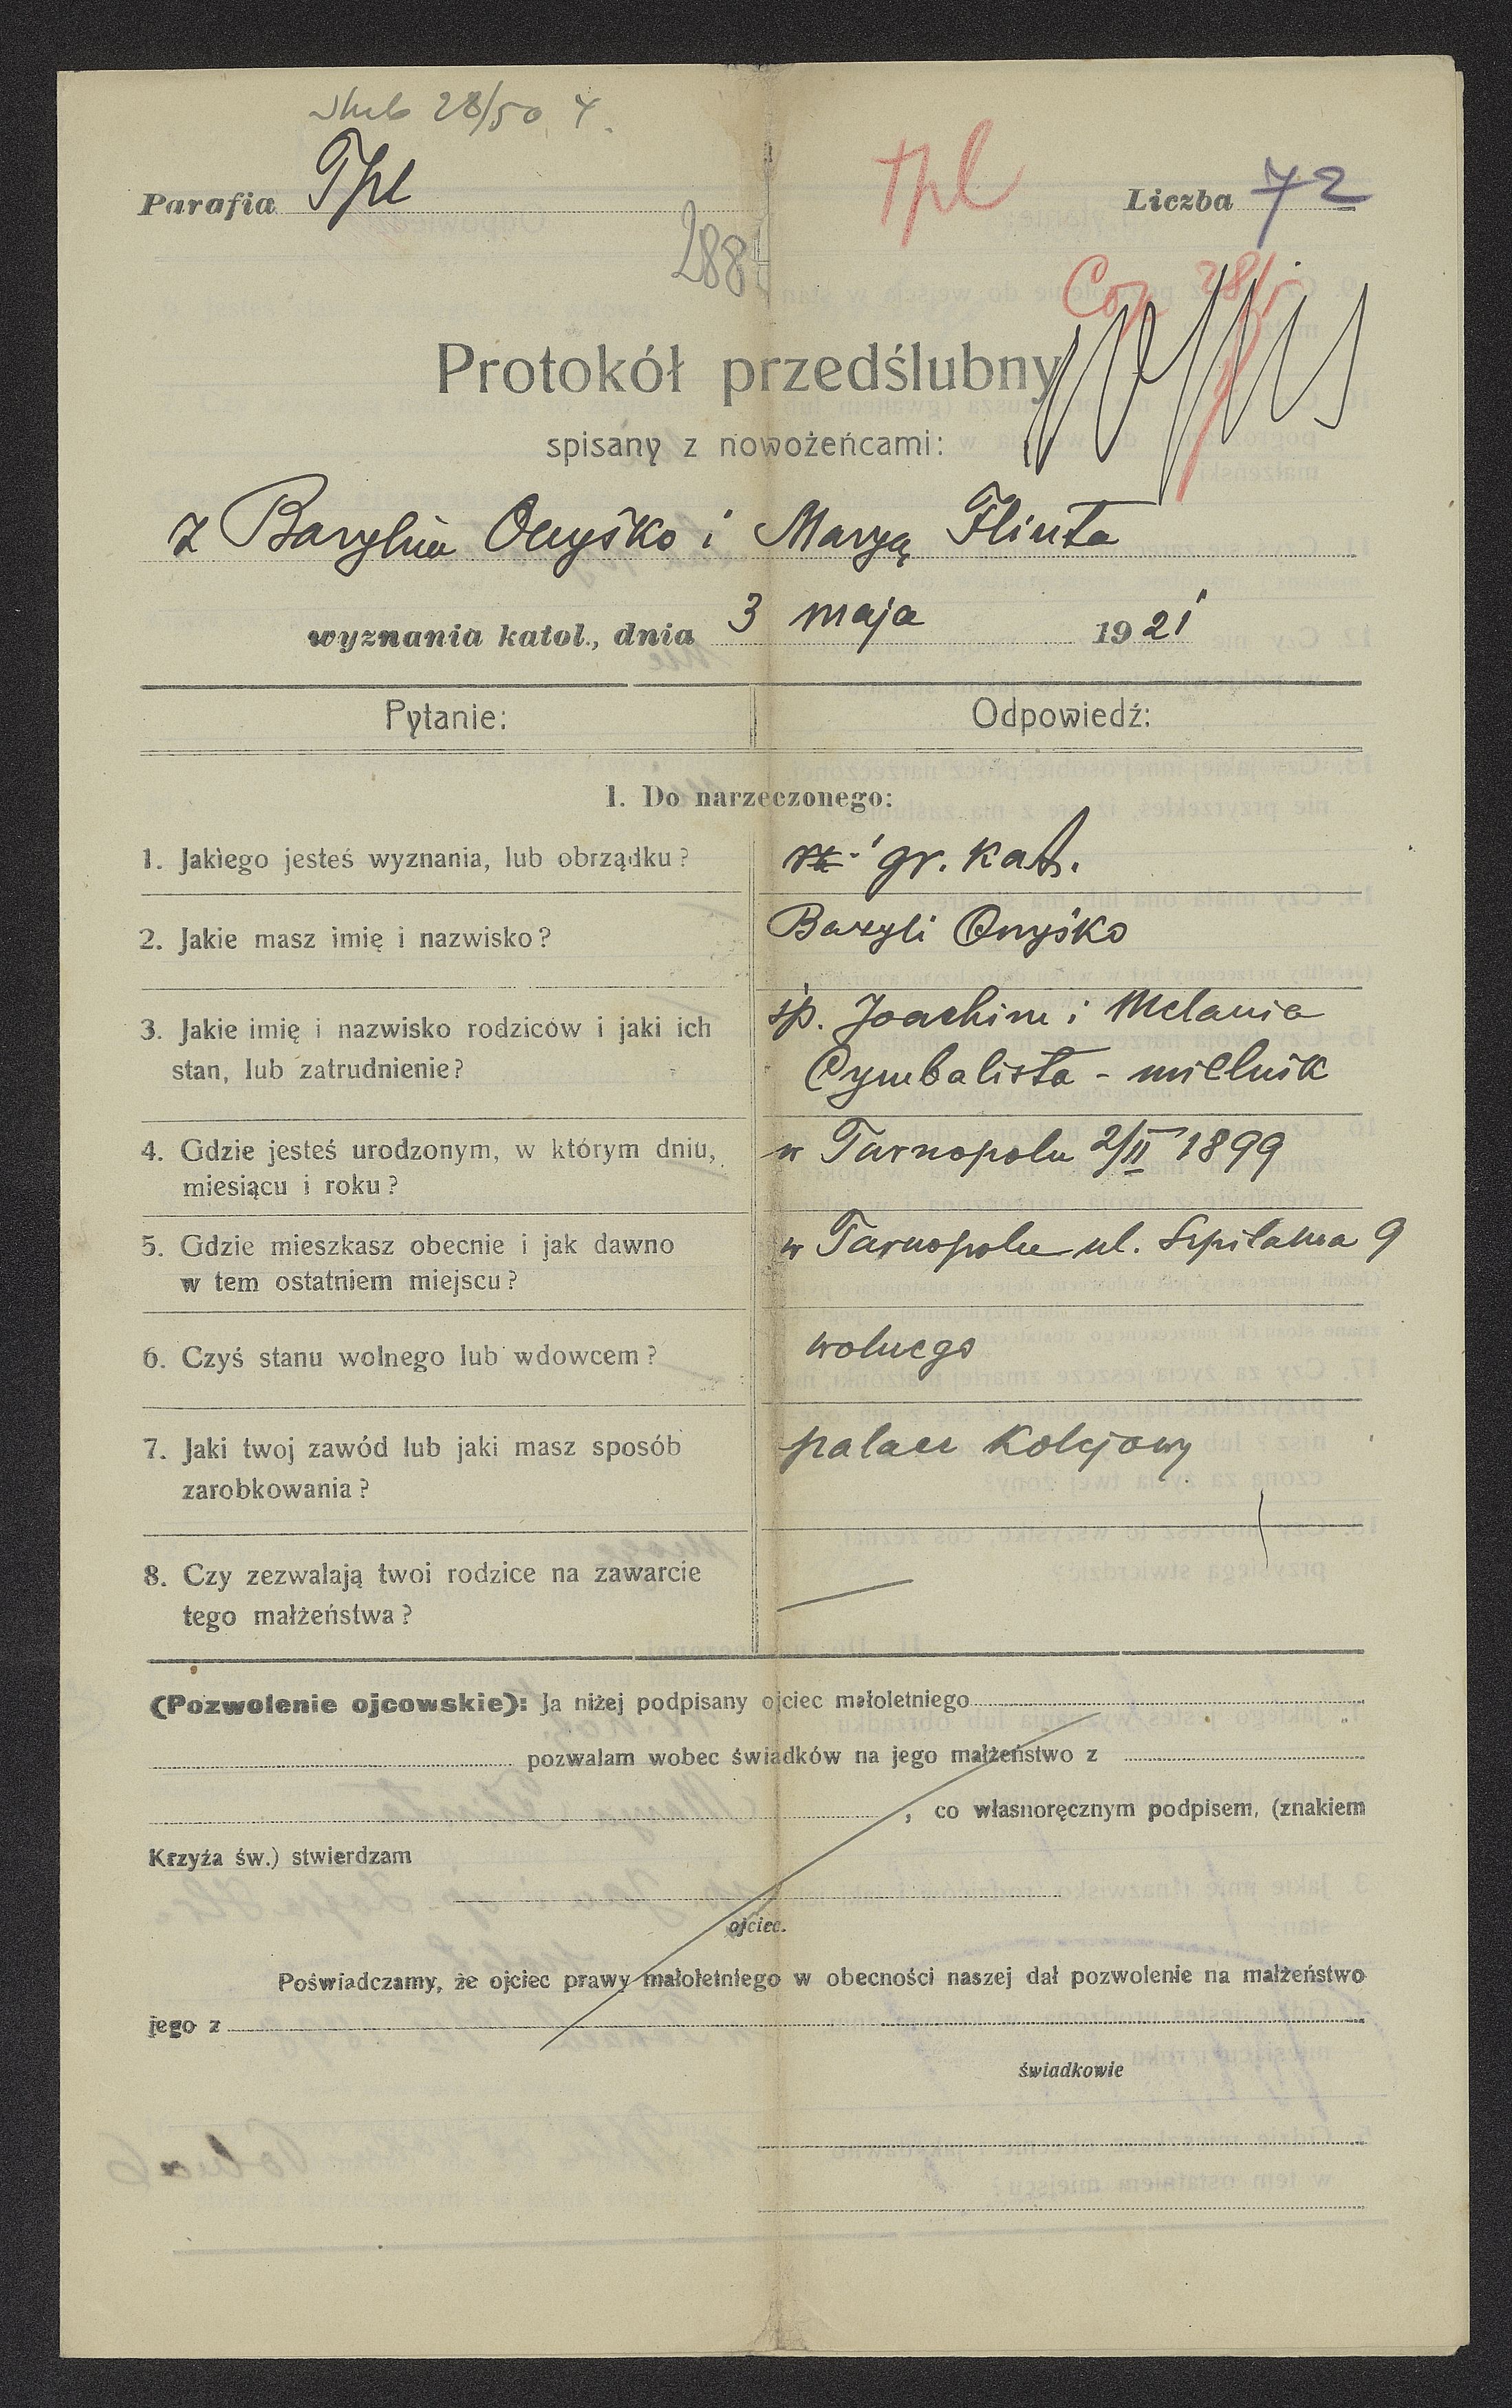 ślub 28/5 o 4.
Parafia Tpl
tpl
Liczba 72
288
Cop 28/5
Protokół przedślubny
spisany z nowożeńcami:
z Bazylim Onyśko i Maryą Flinta
wyznania katol., dnia 3 maja 1921
Pytanie:
Odpowiedź:
1. Do narzeczonego:
1. Jakiego jesteś wyznania, lub obrządku?
gr. kat.
2. Jakie masz imię i nazwisko?
Bazyli Onyśko
3. Jakie imię i nazwisko rodziców i jaki ich
stan, lub zatrudnienie?
śp. Joachim i Melania
Cymbalista - mielnik
4. Gdzie jesteś urodzonym, w którym dniu,
miesiącu i roku?
w Tarnopolu 2/II 1899
5. Gdzie mieszkasz obecnie i jak dawno
w tem ostatniem miejscu?
w Tarnopolu ul. Szpitalna 9
6. Czyś stanu wolnego lub wdowcem?
wolnego
7. Jaki twoj zawód lub jaki masz sposób
zarobkowania?
palacz kolejowy
8. Czy zezwalają twoi rodzice na zawarcie
tego małżeństwa?
(Pozwolenie ojcowskie): Ja niżej podpisany ojciec małoletniego
pozwalam wobec świadków na jego małżeństwo z
, co własnoręcznym podpisem, (znakiem
Krzyża św.) stwierdzam
ojciec.
Poświadczamy, że ojciec prawy małoletniego w obecności naszej dał pozwolenie na małżeństwo
jego z
świadkowie